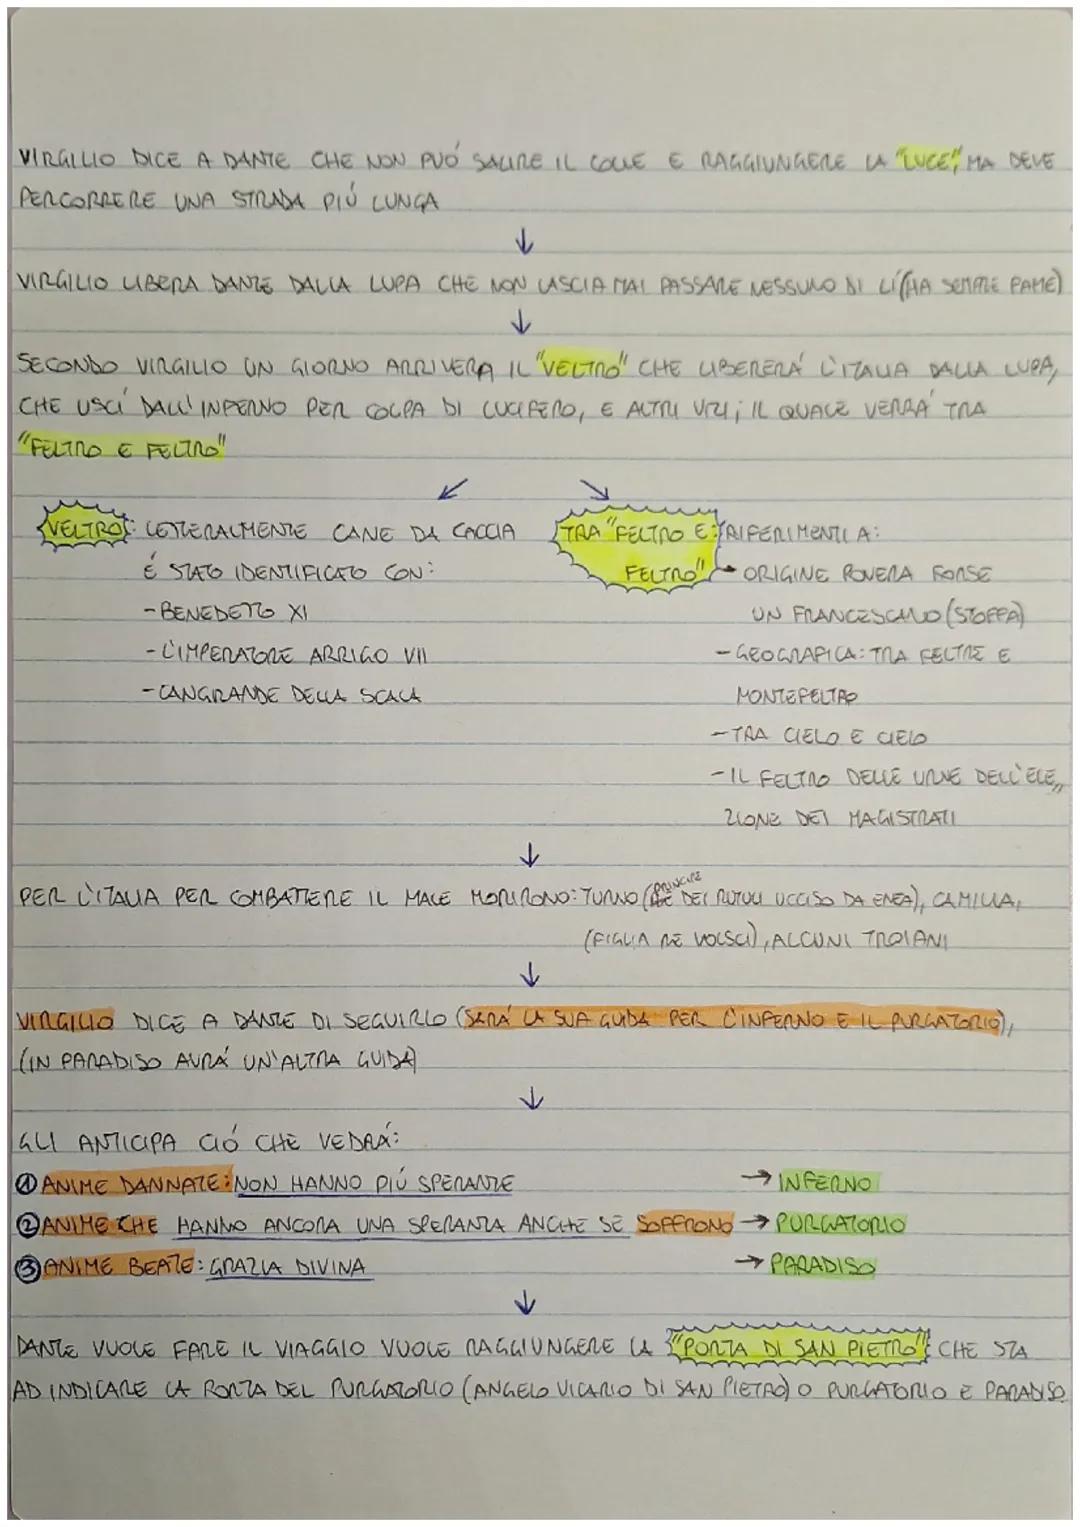 VIRGILIO DICE A DANTE CHE NON PUÓ SALIRE IL COLLE E RAGGIUNGERE LA "LUCE", MA DEVE
PERCORRERE UNA STRADA PIÚ LUNGA
↓
VIRGILIO LIBERA DANTE DALLA LUPA CHE NON LASCIA MAI PASSARE NESSUNO DI LÍ (HA SEMPRE FAME)
↓
SECONDO VIRGILIO UN GIORNO ARRIVERA IL "VELTRO" CHE LIBERERÁ L'ITALIA DALLA LUPA,
CHE USCÍ DALL'INFERNO PER COLPA DI LUCIFERO, E ALTRI VIZI; IL QUALE VERRÁ TRA
"FELTRO E FELTRO"
↙ ↘
VELTRO: LETTERALMENTE CANE DA CACCIA
É STATO IDENTIFICATO CON:
- BENEDETTO XI
- L'IMPERATORE ARRIGO VII
- CANGRANDE DELLA SCALA
TRA "FELTRO E: RIFERIMENTI A:
FELTRO" - ORIGINE POVERA FORSE
UN FRANCESCANO (STOFFA)
- GEOGRAFICA: TRA FELTRE E
MONTEFELTRO
- TRA CIELO E CIELO
- IL FELTRO DELLE URNE DELL'ELE,,
ZIONE DEI MAGISTRATI
↓
PER L'ITALIA PER COMBATTERE IL MALE MORIRONO: TURNO (PRINCIPE DEI RUTULI UCCISO DA ENEA), CAMILLA,
(FIGLIA RE VOLSCI), ALCUNI TROIANI
↓
VIRGILIO DICE A DANTE DI SEGUIRLO (SARÁ LA SUA GUIDA PER L'INFERNO E IL PURGATORIO),
(IN PARADISO AVRÁ UN'ALTRA GUIDA)
↓
GLI ANTICIPA CIÓ CHE VEDRÁ:
① ANIME DANNATE: NON HANNO PIÚ SPERANZE → INFERNO
② ANIME CHE HANNO ANCORA UNA SPERANZA ANCHE SE SOFFRONO → PURGATORIO
③ ANIME BEATE: GRAZIA DIVINA → PARADISO
↓
DANTE VUOLE FARE IL VIAGGIO VUOLE RAGGIUNGERE LA "PORTA DI SAN PIETRO" CHE STA
AD INDICARE LA PORTA DEL PURGATORIO (ANGELO VICARIO DI SAN PIETRO) O PURGATORIO E PARADISO.